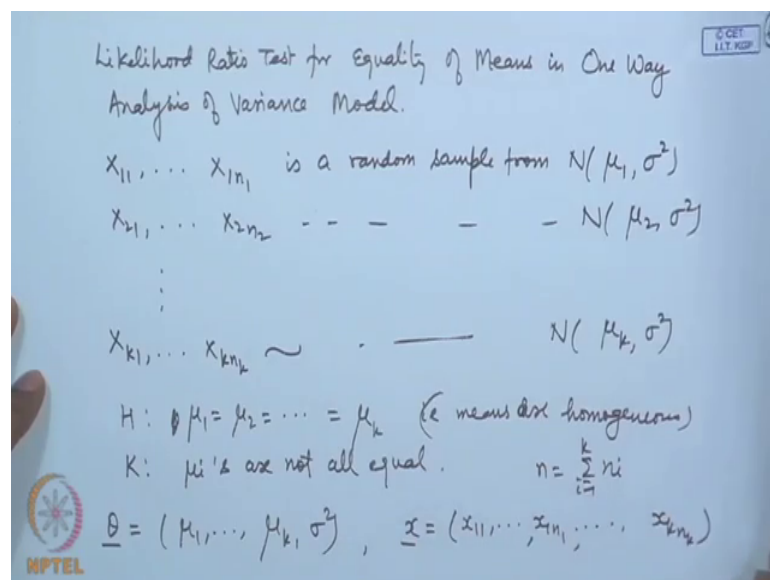 © CET
I.I.T. KGP
Likelihood Ratio Test for Equality of Means in One Way
Analysis of Variance Model.
X₁₁, ... X₁ₙ₁ is a random sample from N(μ₁, σ²)
X₂₁, ... X₂ₙ₂ - - - - - N(μ₂, σ²)
⋮
Xₖ₁, ... Xₖₙₖ ~ . — N(μₖ, σ²)
H: μ₁ = μ₂ = ... = μₖ (ie means are homogeneous)
K: μi's are not all equal. n = Σᵢ₌₁ᵏ ni
θ = (μ₁, ..., μₖ, σ²), x = (x₁₁, ..., x₁ₙ₁, ..., xₖₙₖ)
NPTEL